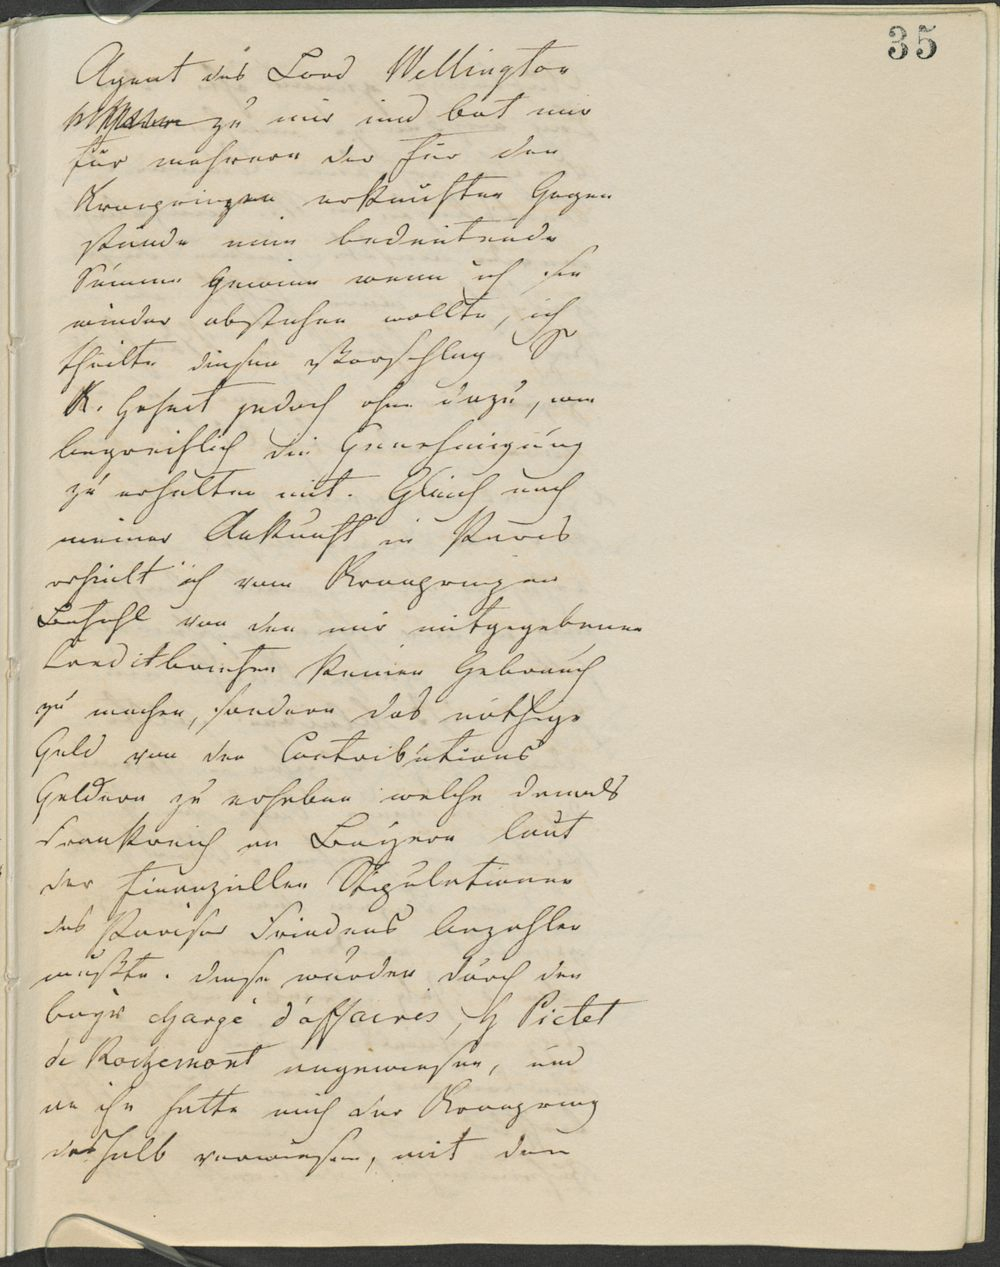 35
Agent des Lord Wellington
zu mir und bot mir
für mehrere der für den
Kronprinzen erkauften Gegen
stände eine bedeutende
Summe Gewinn wenn ich sie
wieder abstehen wollte, ich
theilte diesen Vorschlag S
K. Hoheit jedoch ohne dazu, wie
begreiflich die Genehmigung
zu erhalten mit. Gleich nach
meiner Ankunft in Paris
erhielt ich vom Kronprinzen
Befehl von den mir mitgegebenen
Creditbriefen keinen Gebrauch
zu machen, sondern das nöthige
Geld von den Contributions
Geldern zu erheben welche damals
Frankreich an Bayern laut
der finanziellen Stipulationen
des Pariser Friedens bezahlen
mußte. diese wurden durch den
bayr chargé d'affaires, H Pictet
de Rochemont angewiesen, und
an ihn hatte mich der Kronprinz
deshalb verwiesen, mit dem